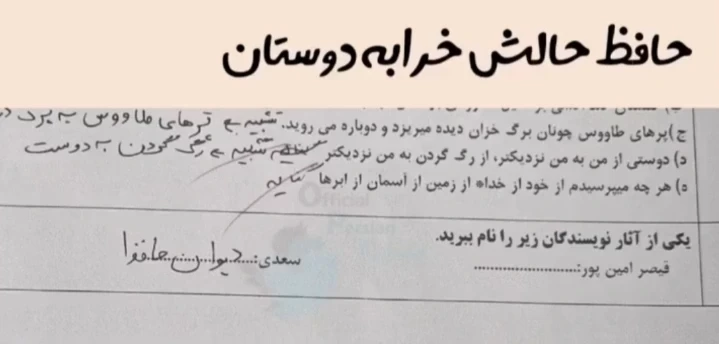 حافظ حالش خرابه دوستان
ج)پرهای طاووس چونان برگ خزان دیده میریزد و دوباره می روید. تشبیه پرهای طاووس به برگ
د) دوستی از من به من نزدیکتر، از رگ گردن به من نزدیکتر تشبیه رگ گردن به دوست
ه) هر چه میپرسیدم از خود از خداه از زمین از آسمان از ابرها کنایه
Official Persian
یکی از آثار نویسندگان زیر را نام ببرید.
قیصر امین پور:........................ سعدی:....دیوان حافظ